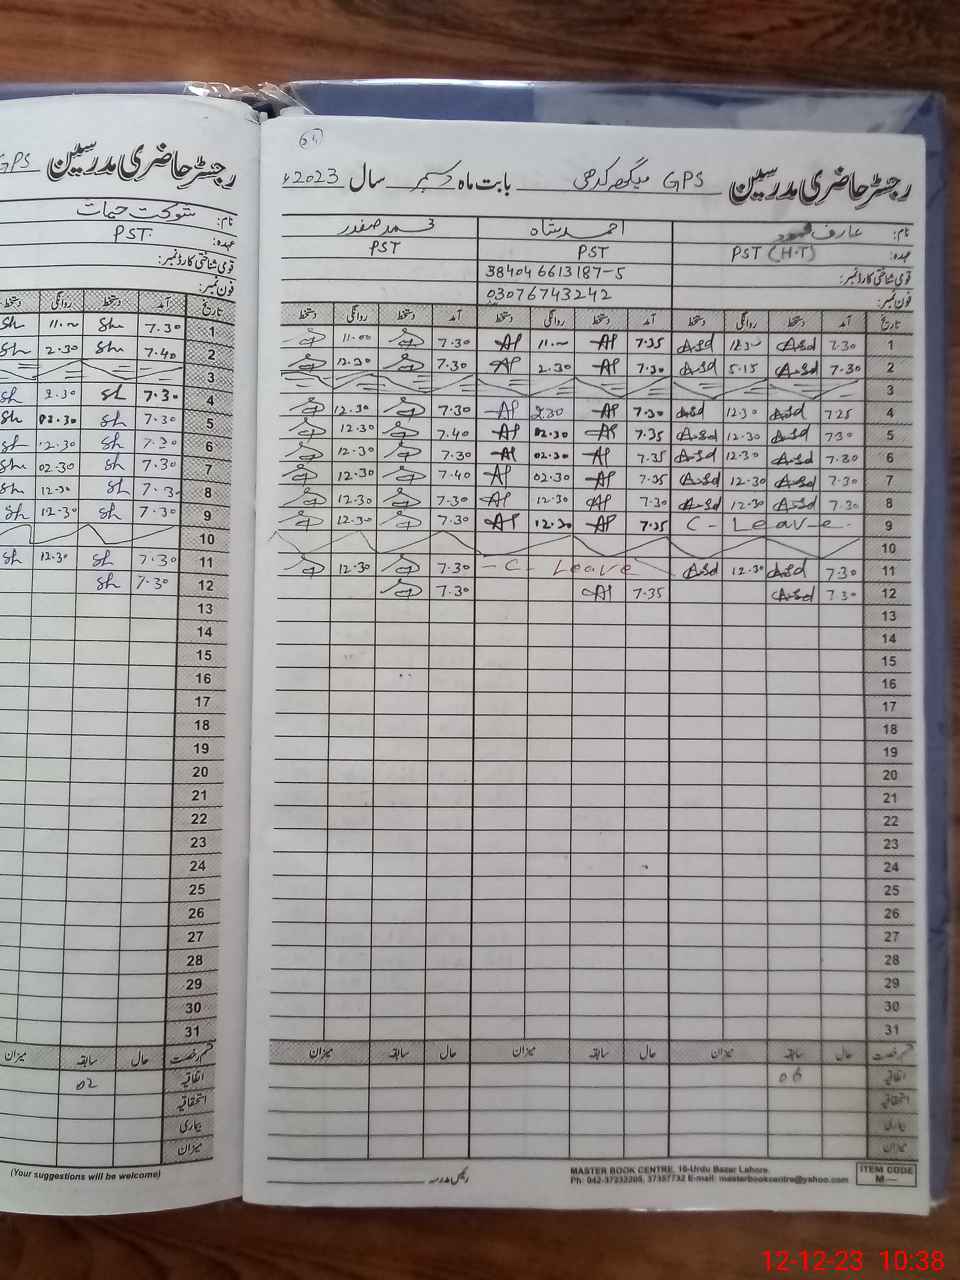 64
رجسٹر حاضری مدرسین GPS بابت ماہ دسمبر سال 2023ء
نام: عارف محمود احمد شاہ محمد صفدر
عہدہ: PST (H.T) PST PST
قومی شناختی کارڈ نمبر: 38404 6613187-5
فون نمبر: 03076743242
تاریخ آمد دستخط روانگی دستخط آمد دستخط روانگی دستخط آمد دستخط روانگی دستخط
1 7.30 Asd Asd 7.35 AP 11.00 AP 7.30 11.00
2 7.30 Asd 5.15 Asd 7.30 AP 2.30 AP 7.30 12.30
3
4 7.25 Asd 12.30 Asd 7.30 AP 2.30 AP 7.30 12.30
5 7.30 Asd 12.30 Asd 7.35 AP 02.30 AP 7.40 12.30
6 7.30 Asd 12.30 Asd 7.35 AP 02.30 AP 7.30 12.30
7 7.30 Asd 12.30 Asd 7.35 AP 02.30 AP 7.40 12.30
8 7.30 Asd 12.30 Asd 7.30 AP 12.30 AP 7.30 12.30
9 C- Leave 7.35 AP 12.30 AP 7.30 12.30
10
11 7.30 Asd 12.30 Asd -C- Leave 7.30 12.30
12 7.30 Asd 7.35 AP 7.30
13
14
15
16
17
18
19
20
21
22
23
24
25
26
27
28
29
30
31
قسم رخصت حال سابقہ میزان حال سابقہ میزان حال سابقہ میزان
اتفاقیہ 06
استحقاقیہ
بیماری
میزان
رئیس مدرسہ
MASTER BOOK CENTRE, 16-Urdu Bazar Lahore.
Ph: 042-37232205, 37357732 E-mail: masterbookcentre@yahoo.com
ITEM CODE
M—
رجسٹر حاضری مدرسین GPS
نام: شوکت حیات
عہدہ: PST
قومی شناختی کارڈ نمبر:
فون نمبر:
تاریخ آمد دستخط روانگی دستخط
1 7.30 Sh 11.00 Sh
2 7.40 Sh 2.30 Sh
3
4 7.30 Sh 2.30 Sh
5 7.30 Sh 02.30 Sh
6 7.30 Sh 12.30 Sh
7 7.30 Sh 02.30 Sh
8 7.30 Sh 12.30 Sh
9 7.30 Sh 12.30 Sh
10
11 7.30 Sh 12.30 Sh
12 7.30 Sh
13
14
15
16
17
18
19
20
21
22
23
24
25
26
27
28
29
30
31
قسم رخصت حال سابقہ میزان
اتفاقیہ 02
استحقاقیہ
بیماری
میزان
(Your suggestions will be welcome)
12-12-23 10:38